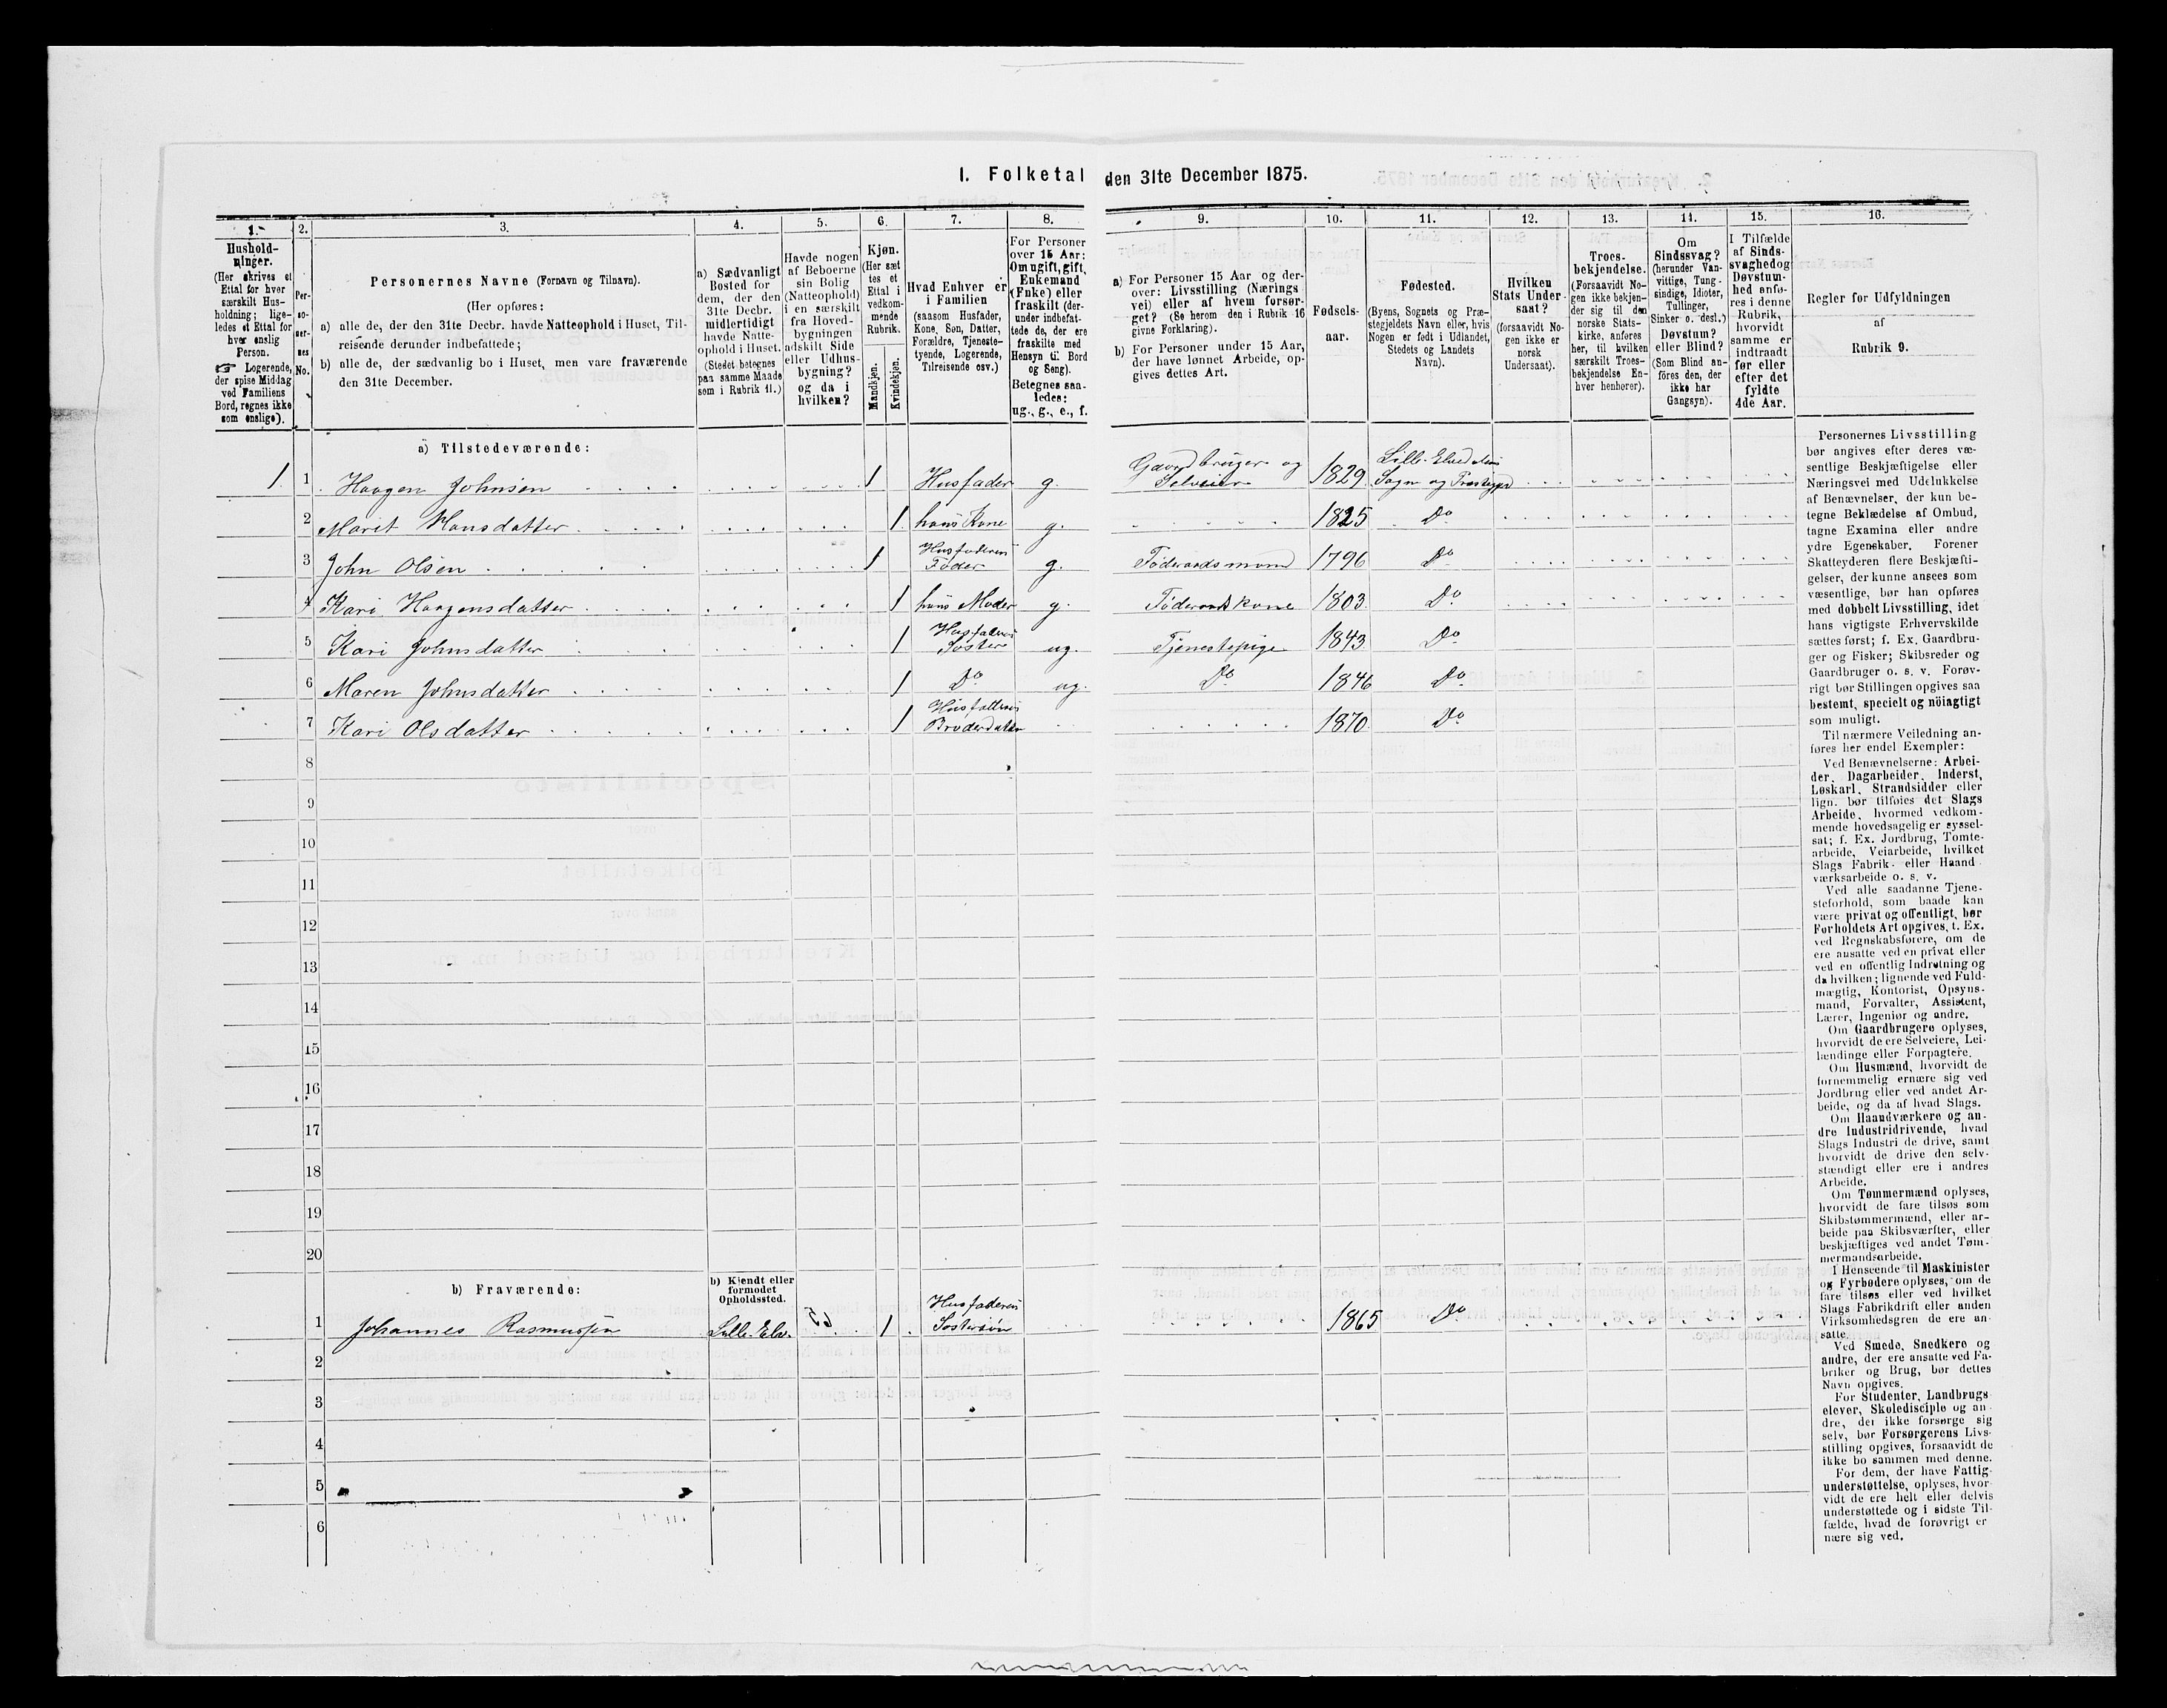 I. Folketal den 31te December 1875.
1. 2. 3. 4. 5. 6. 7. 8. 9. 10. 11. 12. 13. 14. 15. 16.
Hushold-
ninger.
(Her skrives et
Ettal for hver
særskilt Hus-
holdning; lige-
ledes et Ettal for
hver enslig
Person.
☞ Logerende,
der spise Middag
ved Familiens
Bord, regnes ikke
som enslige).
Per-
so-
ner-
nes
No.
Personernes Navne (Fornavn og Tilnavn).
(Her opføres:
a) alle de, der den 31te Decbr. havde Natteophold i Huset, Til-
reisende derunder indbefattede;
b) alle de, der sædvanlig bo i Huset, men vare fraværende
den 31te December.
a) Sædvanligt
Bosted for
dem, der den
31te Decbr.
midlertidigt
havde Natte-
ophold i Huset.
(Stedet betegnes
paa samme Maade
som i Rubrik 11.)
Havde nogen
af Beboerne
sin Bolig
(Natteophold)
i en særskilt
fra Hoved-
bygningen
adskilt Side
eller Udhus-
bygning?
og da i
hvilken?
Kjøn.
(Her sæt
tes et
Ettal i
vedkom-
mende
Rubrik.
Mandkjøn.
Kvindekjøn.
Hvad Enhver er
i Familien
(saasom Husfader,
Kone, Søn, Datter,
Forældre, Tjeneste-
tyende, Logerende,
Tilreisende osv.)
For Personer
over 15 Aar:
Om ugift, gift,
Enkemand
(Enke) eller
fraskilt (der-
under indbefat-
tede de, der ere
fraskilte med
Hensyn til Bord
og Seng).
Betegnes saa-
ledes:
ug., g., e., f.
a) For Personer 15 Aar og der-
over: Livsstilling (Nærings
vei) eller af hvem forsør-
get? (Se herom den i Rubrik 16
givne Forklaring).
b) For Personer under 15 Aar,
der have lønnet Arbeide, op-
gives dettes Art.
Fødsels-
aar.
Fødested.
(Byens, Sognets og Præ-
stegjeldets Navn eller, hvis
Nogen er født i Udlandet,
Stedets og Landets
Navn).
Hvilken
Stats Under-
saat?
(forsaavidt No-
gen ikke er
norsk
Undersaat).
Troes-
bekjendelse.
(Forsaavidt No-
gen ikke bekjen-
der sig til den
norske Stats-
kirke, anføres
her, til hvilken
særskilt Troes-
bekjendelse En-
hver henhører).
Om
Sindssvag?
(herunder Van-
vittige, Tung-
sindige, Idioter,
Tullinger,
Sinker o. desl.)
Døvstum?
eller Blind?
(Som Blind an-
føres den, der
ikke har
Gangsyn).
I Tilfælde
af Sinds-
svaghed og
Døvstum-
hed anfø-
res i denne
Rubrik,
hvorvidt
samme er
indtraadt
før eller
efter det
fyldte
4de Aar.
Regler for Udfyldningen
af
Rubrik 9.
a) Tilstedeværende:
1. 1 Haagen Johnsen 1 Husfader g. Gaardbruger og Selveier 1829 Lille-Elvedalens Sogn og Præstegjeld
2 Marit Hansdatter 1 hans Kone g. 1825 Do
3 John Olsen 1 Husfaderens Fader g. Føderaadsmand 1796 Do
4 Kari Haagensdatter 1 hans Moder g. Føderaadskone 1803 Do
5 Kari Johnsdatter 1 Husfaderens Søster ug. Tjenestepige 1843 Do
6 Maren Johnsdatter 1 Do ug. Do 1846 Do
7 Kari Olsdatter 1 Husfaderens Broderdatter 1870 Do
8
9
10
11
12
13
14
15
16
17
18
19
20
b) Fraværende:
b) Kjendt eller
formodet
Opholdssted.
1 Johannes Rasmussen Lille-Elv. 1 Husfaderens Søstersøn 1865 Do
2
3
4
5
6
Personernes Livsstilling
bør angives efter deres væ-
sentlige Beskjæftigelse eller
Næringsvei med Udelukkelse
af Benævnelser, der kun be-
tegne Beklædelse af Ombud,
tagne Examina eller andre
ydre Egenskaber. Forener
Skatteyderen flere Beskjæfti-
gelser, der kunne ansees som
væsentlige, bør han opføres
med dobbelt Livsstilling, idet
hans vigtigste Erhvervskilde
sættes først; f. Ex. Gaardbru-
ger og Fisker; Skibsreder og
Gaardbruger o. s. v. Forøv-
rigt bør Stillingen opgives saa
bestemt, specielt og nöiagtigt
som muligt.
Til nærmere Veiledning an-
føres her endel Exempler:
Ved Benævnelserne: Arbei-
der, Dagarbeider, Inderst,
Løskarl, Strandsidder eller
lign. bør tilføies det Slags
Arbeide, hvormed vedkom-
mende hovedsagelig er syssel-
sat; f. Ex. Jordbrug, Tomte-
arbeide, Veiarbeide, hvilket
Slags Fabrik- eller Haand
værksarbeide o. s. v.
Ved alle saadanne Tjene-
steforhold, som baade kan
være privat og offentligt, bør
Forholdets Art opgives, f. Ex.
ved Regnskabsførere, om de
ere ansatte ved en privat eller
ved en offentlig Indretning og
da hvilken; lignende ved Fuld-
mægtig, Kontorist, Opsyns-
mand, Forvalter, Assistent,
Lærer, Ingeniør og andre.
Om Gaardbrugere oplyses,
hvorvidt de ere Selveiere, Lei-
lændinge eller Forpagtere.
Om Husmænd, hvorvidt de
fornemmelig ernære sig ved
Jordbrug eller ved andet Ar-
beide, og da af hvad Slags.
Om Haandværkere og an-
dre Industridrivende, hvad
Slags Industri de drive, samt
hvorvidt de drive den selv-
stændigt eller ere i andres
Arbeide.
Om Tømmermænd oplyses,
hvorvidt de fare tilsøs som
Skibstømmermænd, eller ar-
beide paa Skibsværfter, eller
beskjæftiges ved andet Tøm-
mermandsarbeide.
I Henseende til Maskinister
og Fyrbødere oplyses, om de
fare tilsøs eller ved hvilket
Slags Fabrikdrift eller anden
Virksomhedsgren de ere an-
satte.
Ved Smede, Snedkere og
andre, der ere ansatte ved Fa-
briker og Brug, bør dettes
Navn opgives.
For Studenter, Landbrugs
elever, Skoledisciple og an-
dre, der ikke forsørge sig
selv, bør Forsørgerens Livs-
stilling opgives, forsaavidt de
ikke bo sammen med denne.
For dem, der have Fattig-
understøttelse, oplyses, hvor-
vidt de ere helt eller delvis
understøttede og i sidste Til-
fælde, hvad de forøvrigt er
nære sig ved.